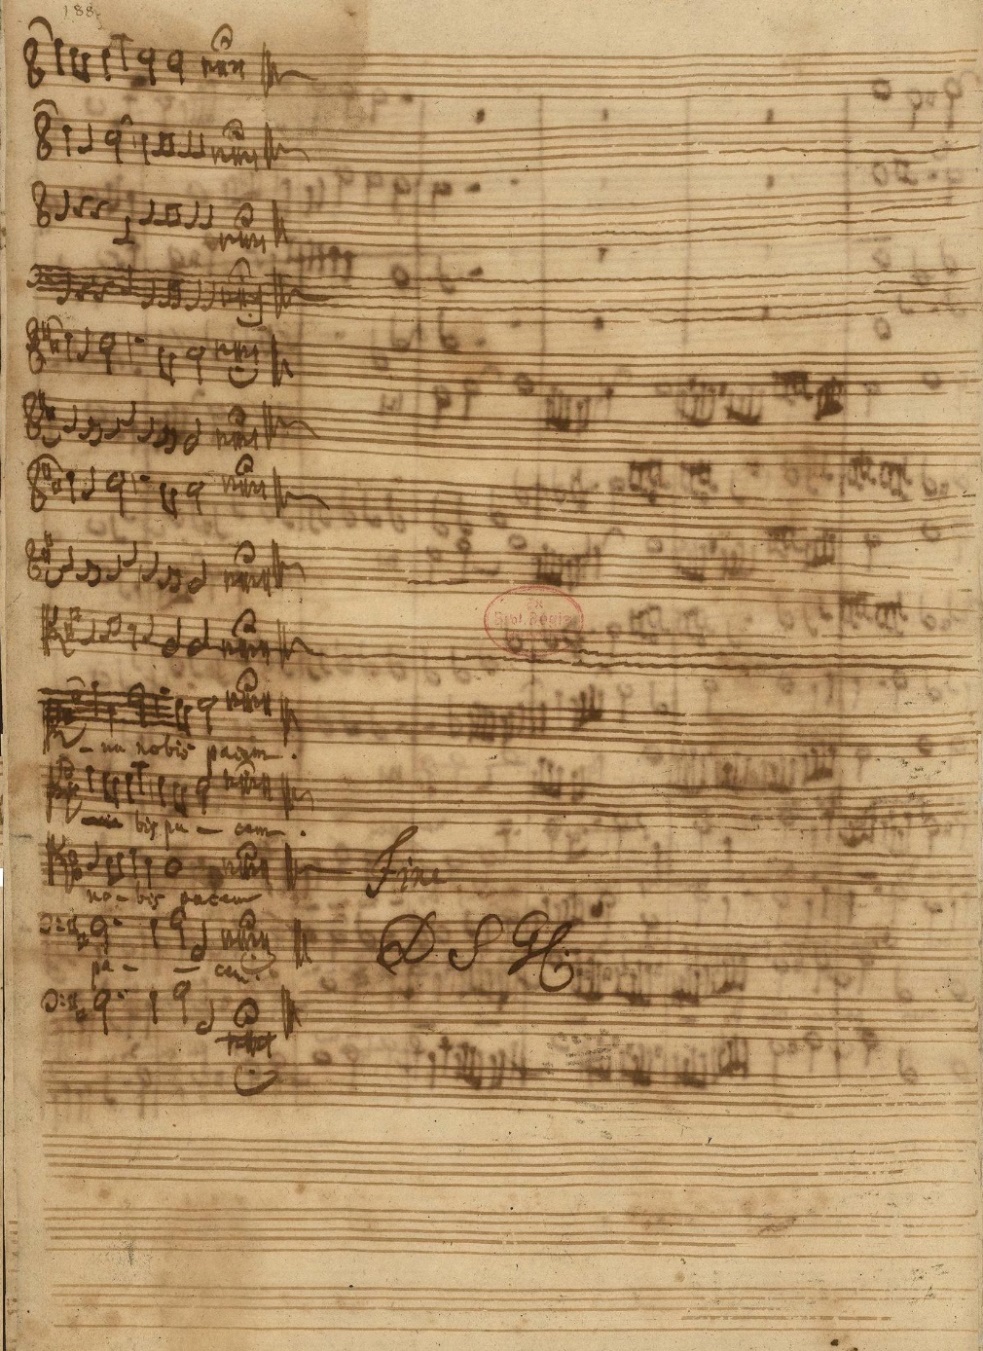 188.
Ex
Bibl. Regia
- na nobis pacem.
bis pa - cem.
no - bis pacem
Fine
pa - - cem.
D S Gl